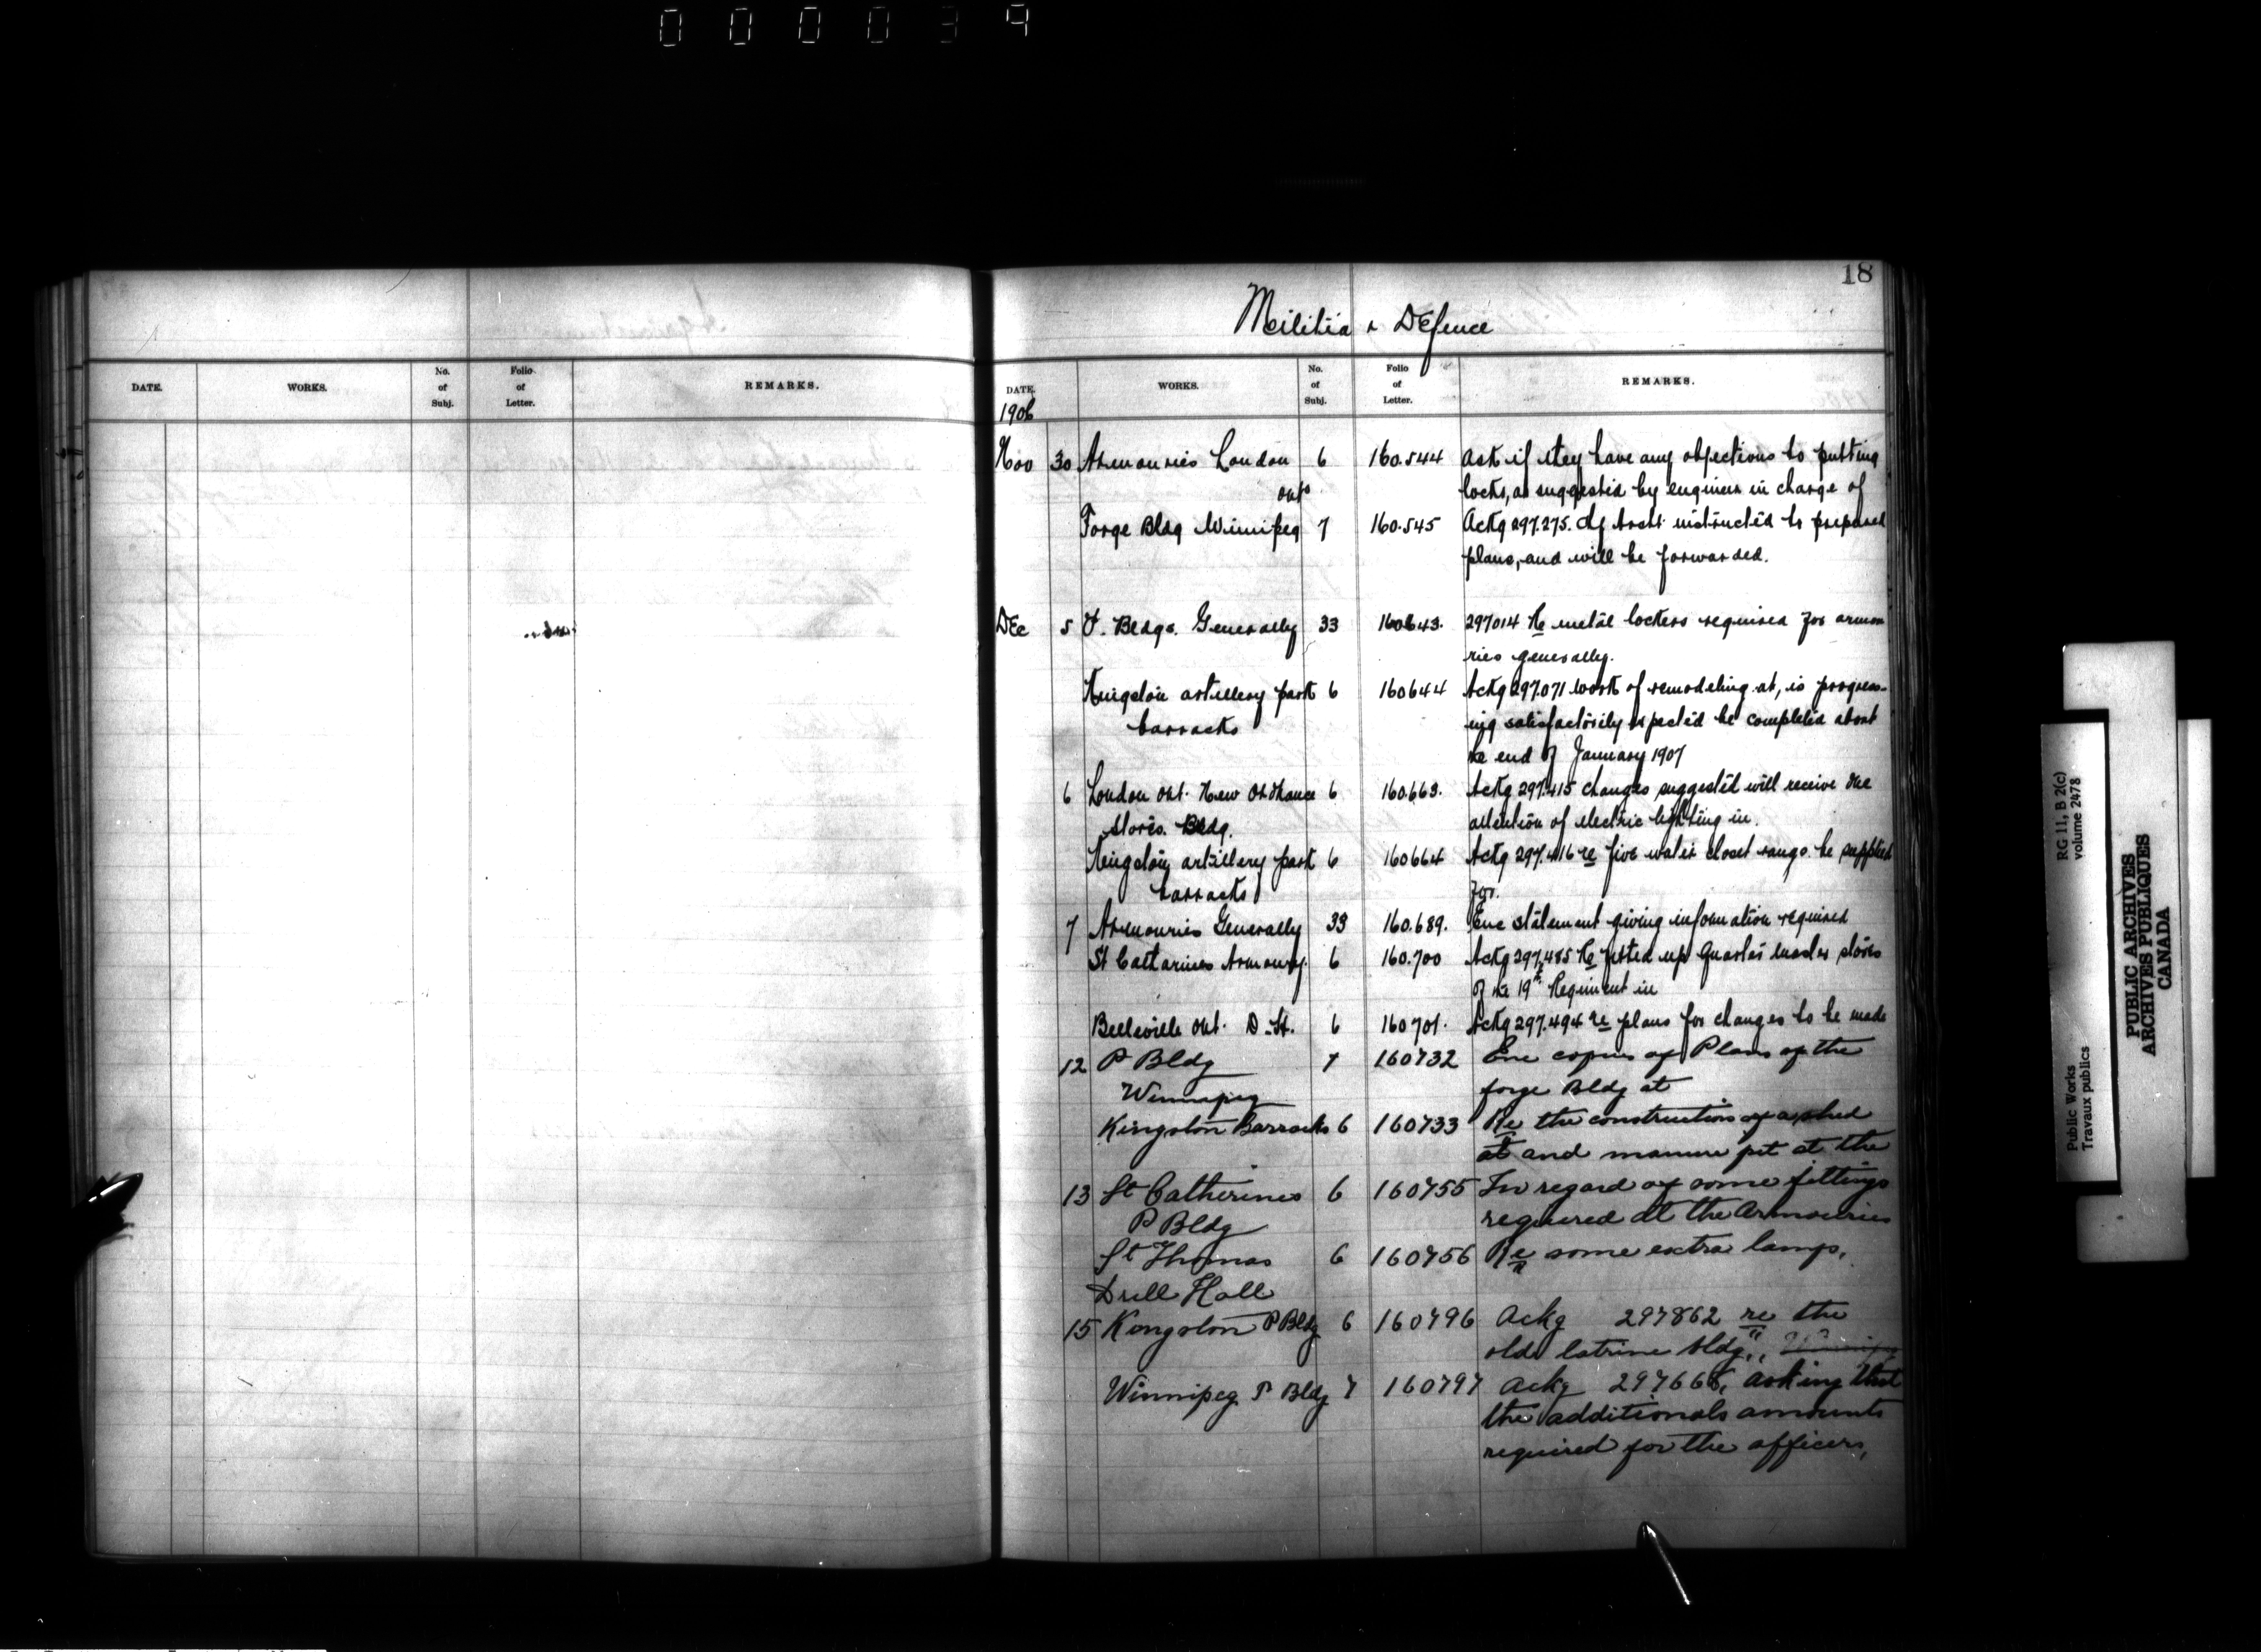 000039
18
Militia & Defence
DATE. WORKS. No. of Subj. Folio of Letter. REMARKS.
DATE. WORKS. No. of Subj. Folio of Letter. REMARKS.
1906
Nov 30 Armouries London 6 160.544 Ask if they have any objections to putting
Ont locks, as suggested by engineer in charge of
Forge Bldg Winnipeg 7 160.545 Ackg 297.275. Chf Archt instructed to prepared
plans, and will be forwarded.
Dec 5 P. Bldgs. Generally 33 160643. 297014 Re metal lockers required for armou
ries generally.
Kingston artillery park 6 160644 Ackg 297.071 work of remodeling at, is progress-
barracks ing satisfactorily expected be completed about
the end of January 1907
6 London Ont. New Ordnance 6 160.663. Ackg 297.415 changes suggested will receive due
Stores. Bldg. attention of electric lighting in.
Kingston artillery park 6 160664 Ackg 297.416 re five water closet rangs. be supplied
barracks for.
7 Armouries Generally 33 160.689. Enc statement giving information required
St Catharines Armoury. 6 160.700 Ackg 297,485 Re fitted up Quarter master stores
of the 19th Regiment in
Belleville Ont. D. H. 6 160701. Ackg 297.494 re plans for changes to be made
12 P Bldg 7 160732 Enc copies of Plans of the
Winnipeg forge Bldg at
Kingston Barracks 6 160733 Re the construction of a shed
at and manure pit at the
13 St Catherines 6 160755 In regard of some fittings
P Bldg required at the Armouries
St Thomas 6 160756 Re some extra lamps,
Drill Hall
15 Kingston P Bldg 6 160796 Ackg 297862 re the
old latrine bldg,, Winnipeg
Winnipeg P Bldg 7 160797 Ackg 297666, asking that
the additionals amounts
required for the officers,
RG 11, B 2(c)
volume 2478
Public Works
Travaux publics
PUBLIC ARCHIVES
ARCHIVES PUBLIQUES
CANADA